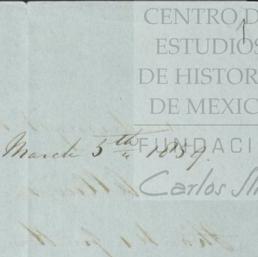 CENTRO D
ESTUDIOS
DE HISTOR
DE MEXIC
March 5th 1859.
FUNDACI
Carlos Sli